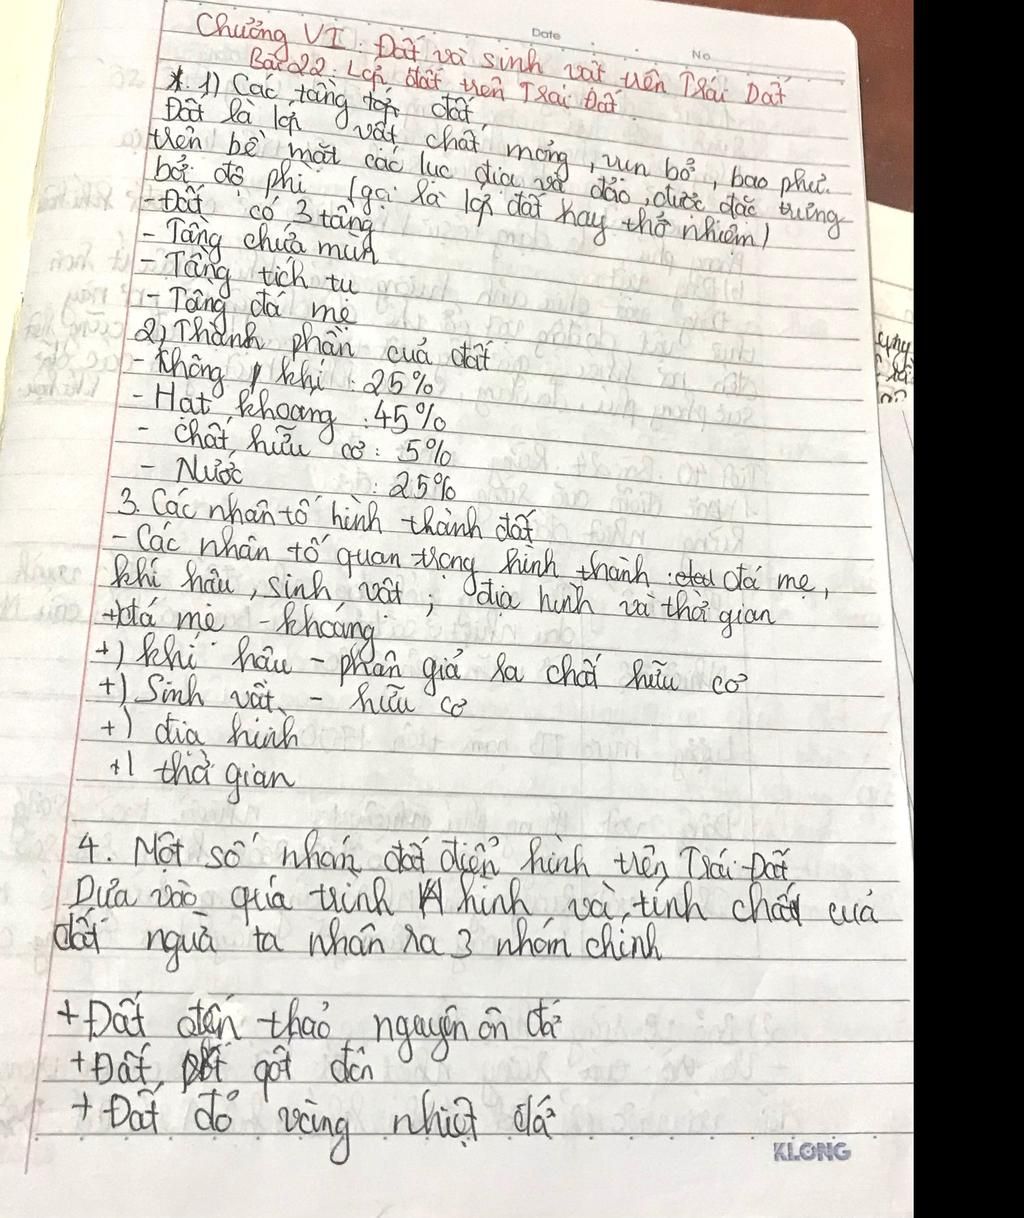 Date
No
Chương VI. Đất và sinh vật trên Trái Đất
Bài 22: Lớp đất trên Trái Đất.
* 1) Các tầng lớp đất
Đất là lớp vật chất mỏng, vụn bở, bao phủ
trên bề mặt các lục địa và đảo, được đặc trưng
bởi độ phì (gọi là lớp đất hay thổ nhiễm)
- Đất có 3 tầng
- Tầng chứa mùn
- Tầng tích tụ
- Tầng đá mẹ
2) Thành phần của đất
- Không khí : 25%
- Hạt khoáng : 45%
- chất hữu cơ : 5%
- Nước : 25%
3. Các nhân tố hình thành đất
- Các nhân tố quan trọng hình thành : đá mẹ,
khí hậu, sinh vật ; địa hình và thờ gian
+) đá mẹ - khoáng
+) khí hậu - phân giả ra chất hữu cơ
+) Sinh vật - hữu cơ
+) địa hình
+) thờ gian
4. Một số nhóm đất điển hình trên Trái Đất
Dựa vào quá trình hình và tính chất của
đất người ta nhân ra 3 nhóm chính
+ Đất đến thảo nguyên ôn đớ
+ Đất pốt gôt đôn
+ Đất đỏ vàng nhiệt đớ
KLONG